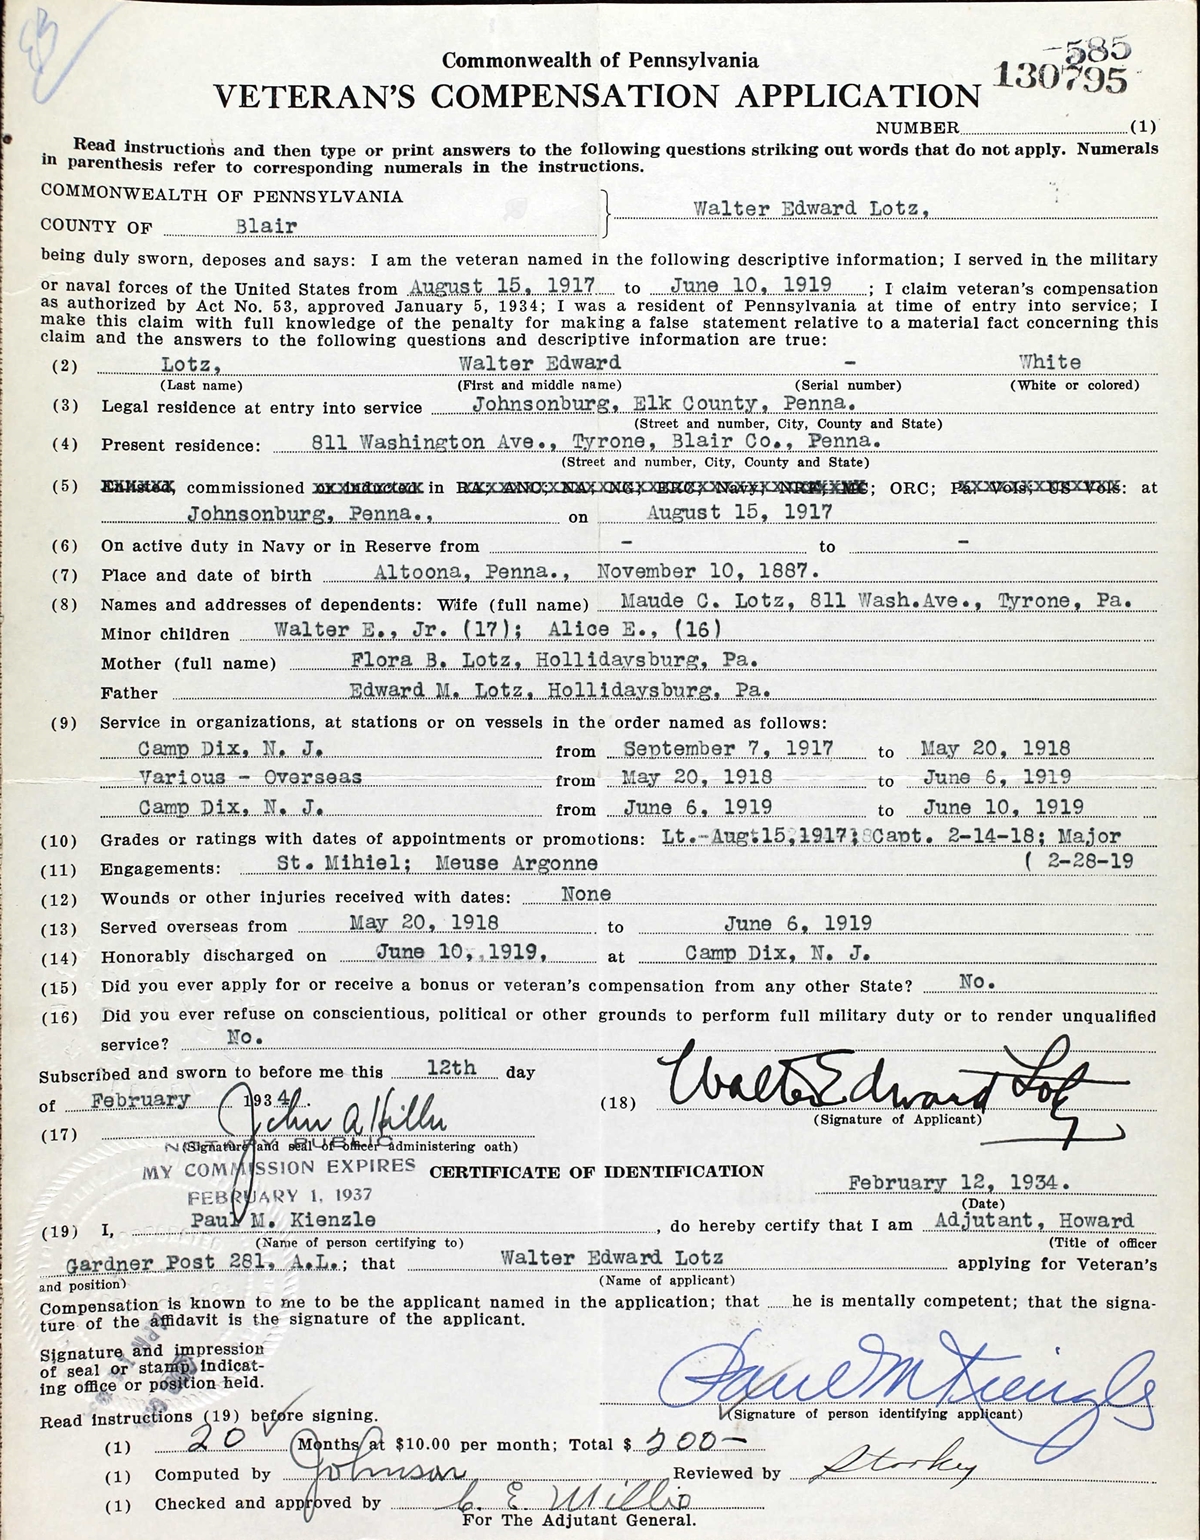 Commonwealth of Pennsylvania
-585
VETERAN'S COMPENSATION APPLICATION 130795
NUMBER (1)
Read instructions and then type or print answers to the following questions striking out words that do not apply. Numerals
in parenthesis refer to corresponding numerals in the instructions.
COMMONWEALTH OF PENNSYLVANIA
Walter Edward Lotz,
COUNTY OF Blair
being duly sworn, deposes and says: I am the veteran named in the following descriptive information; I served in the military
or naval forces of the United States from August 15, 1917 to June 10, 1919 ; I claim veteran's compensation
as authorized by Act No. 53, approved January 5, 1934; I was a resident of Pennsylvania at time of entry into service; I
make this claim with full knowledge of the penalty for making a false statement relative to a material fact concerning this
claim and the answers to the following questions and descriptive information are true:
(2) Lotz, Walter Edward - White
(Last name) (First and middle name) (Serial number) (White or colored)
(3) Legal residence at entry into service Johnsonburg, Elk County, Penna.
(Street and number, City, County and State)
(4) Present residence: 811 Washington Ave., Tyrone, Blair Co., Penna.
(Street and number, City, County and State)
(5) Enlisted, commissioned or inducted in RA; ANC; NA; NG; ERC; Navy; NRF; MC; ORC; Pa. Vols; US Vols: at
Johnsonburg, Penna., on August 15, 1917
(6) On active duty in Navy or in Reserve from - to -
(7) Place and date of birth Altoona, Penna., November 10, 1887.
(8) Names and addresses of dependents: Wife (full name) Maude C. Lotz, 811 Wash.Ave., Tyrone, Pa.
Minor children Walter E., Jr. (17); Alice E., (16)
Mother (full name) Flora B. Lotz, Hollidaysburg, Pa.
Father Edward M. Lotz, Hollidaysburg, Pa.
(9) Service in organizations, at stations or on vessels in the order named as follows:
Camp Dix, N. J. from September 7, 1917 to May 20, 1918
Various - Overseas from May 20, 1918 to June 6, 1919
Camp Dix, N. J. from June 6, 1919 to June 10, 1919
(10) Grades or ratings with dates of appointments or promotions: Lt.-Aug.15,1917; Capt. 2-14-18; Major
(11) Engagements: St. Mihiel; Meuse Argonne ( 2-28-19
(12) Wounds or other injuries received with dates: None
(13) Served overseas from May 20, 1918 to June 6, 1919
(14) Honorably discharged on June 10, 1919, at Camp Dix, N. J.
(15) Did you ever apply for or receive a bonus or veteran's compensation from any other State? No.
(16) Did you ever refuse on conscientious, political or other grounds to perform full military duty or to render unqualified
service? No.
Subscribed and sworn to before me this 12th day
of February 1934.
(18) Walter Edward Lotz
(Signature of Applicant)
(17) John A Hiller
(Signature and seal of officer administering oath)
NOTARY PUBLIC
MY COMMISSION EXPIRES
FEBRUARY 1, 1937
CERTIFICATE OF IDENTIFICATION
February 12, 1934.
(Date)
(19) I, Paul M. Kienzle , do hereby certify that I am Adjutant, Howard
(Name of person certifying to) (Title of officer
Gardner Post 281, A.L.; that Walter Edward Lotz applying for Veteran's
and position) (Name of applicant)
Compensation is known to me to be the applicant named in the application; that he is mentally competent; that the signa-
ture of the affidavit is the signature of the applicant.
Signature and impression
of seal or stamp indicat-
ing office or position held.
Paul M Kienzle
(Signature of person identifying applicant)
Read instructions (19) before signing.
(1) 20 Months at $10.00 per month; Total $ 200-
(1) Computed by Johnson Reviewed by Storkey
(1) Checked and approved by C. E. Millis
For The Adjutant General.